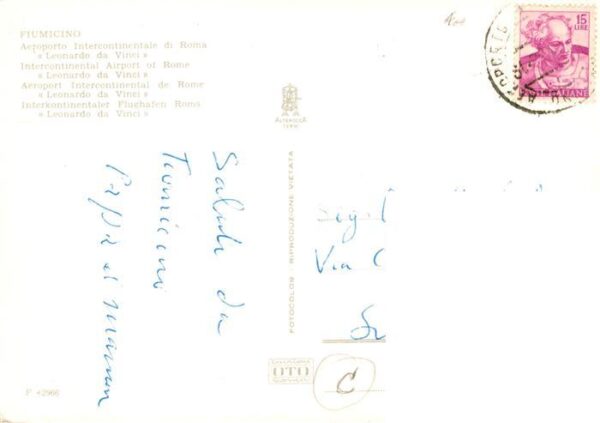 FIUMICINO
Aeroporto Intercontinentale di Roma
« Leonardo da Vinci »
Intercontinental Airport of Rome
« Leonardo da Vinci »
Aeroport Intercontinental de Rome
« Leonardo da Vinci »
Interkontinentaler Flughafen Roms
« Leonardo da Vinci »
Saluti da
Fiumicino
Papà e mamma
FOTOCOLOR - RIPRODUZIONE VIETATA
ALTEROCCA
TERNI
15
LIRE
Sig.
Via
OTO
C
F 42966